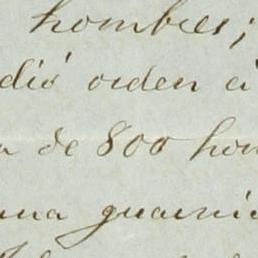 hombres;
dió orden á
de 800 hom
una guarnic